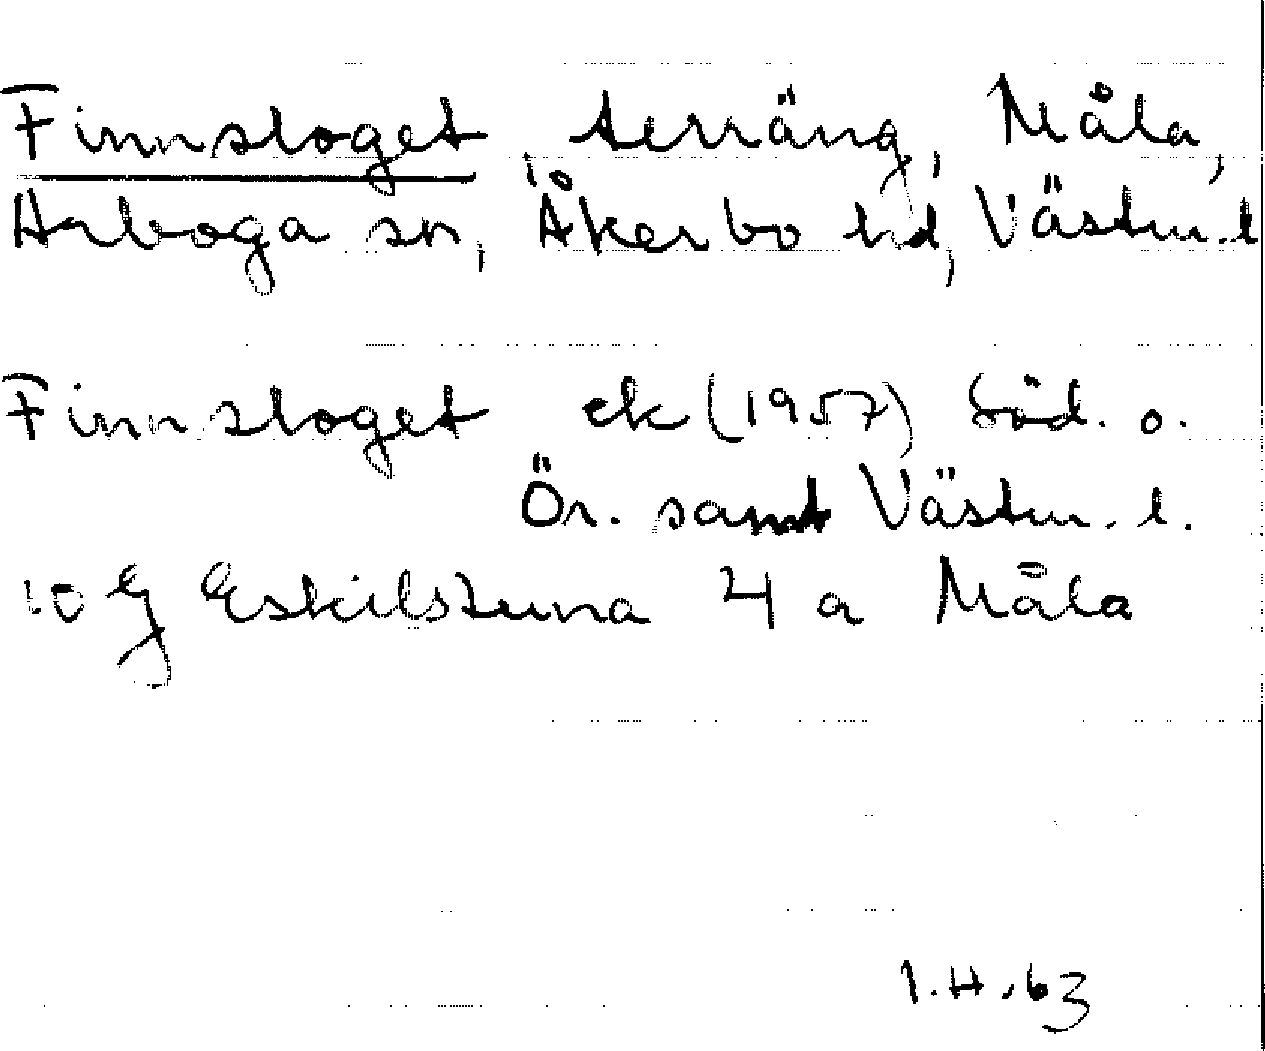 Finnsloget, terräng, Måla,
Arboga sn, Åkerbo hd, Västm.l
Finnsloget ek (1957) Söd. o.
Ör. samt Västm. l.
10 G Eskilstuna 4 a Måla
I.H. 63